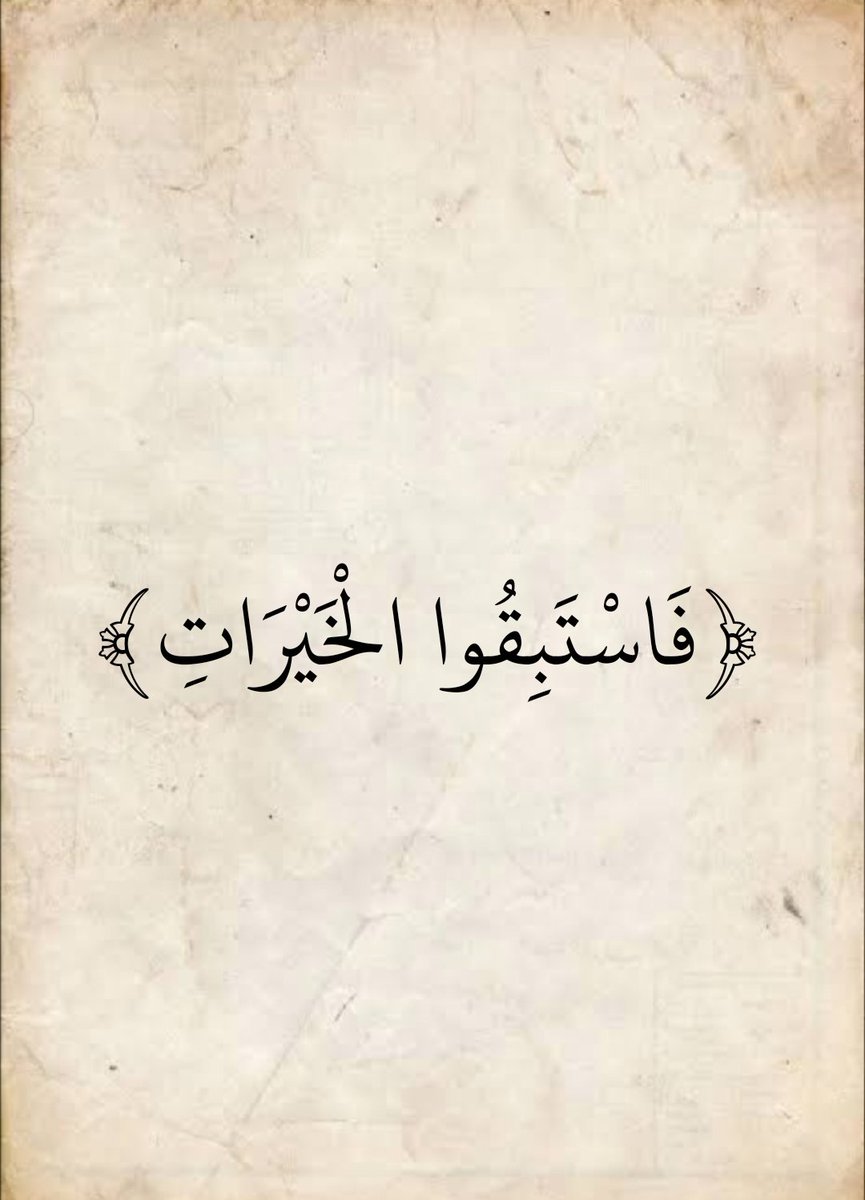 ﴿فَاسْتَبِقُوا الْخَيْرَاتِ﴾